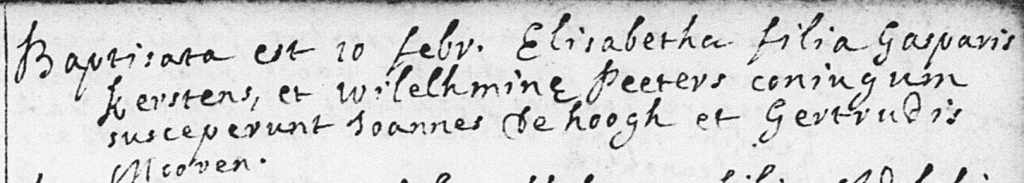 Baptisata est 10 febr. Elisabetha filia Gasparis
Kerstens, et wilelhminę Peeters coniugum
susceperunt Joannes de hoogh et Gertrudis